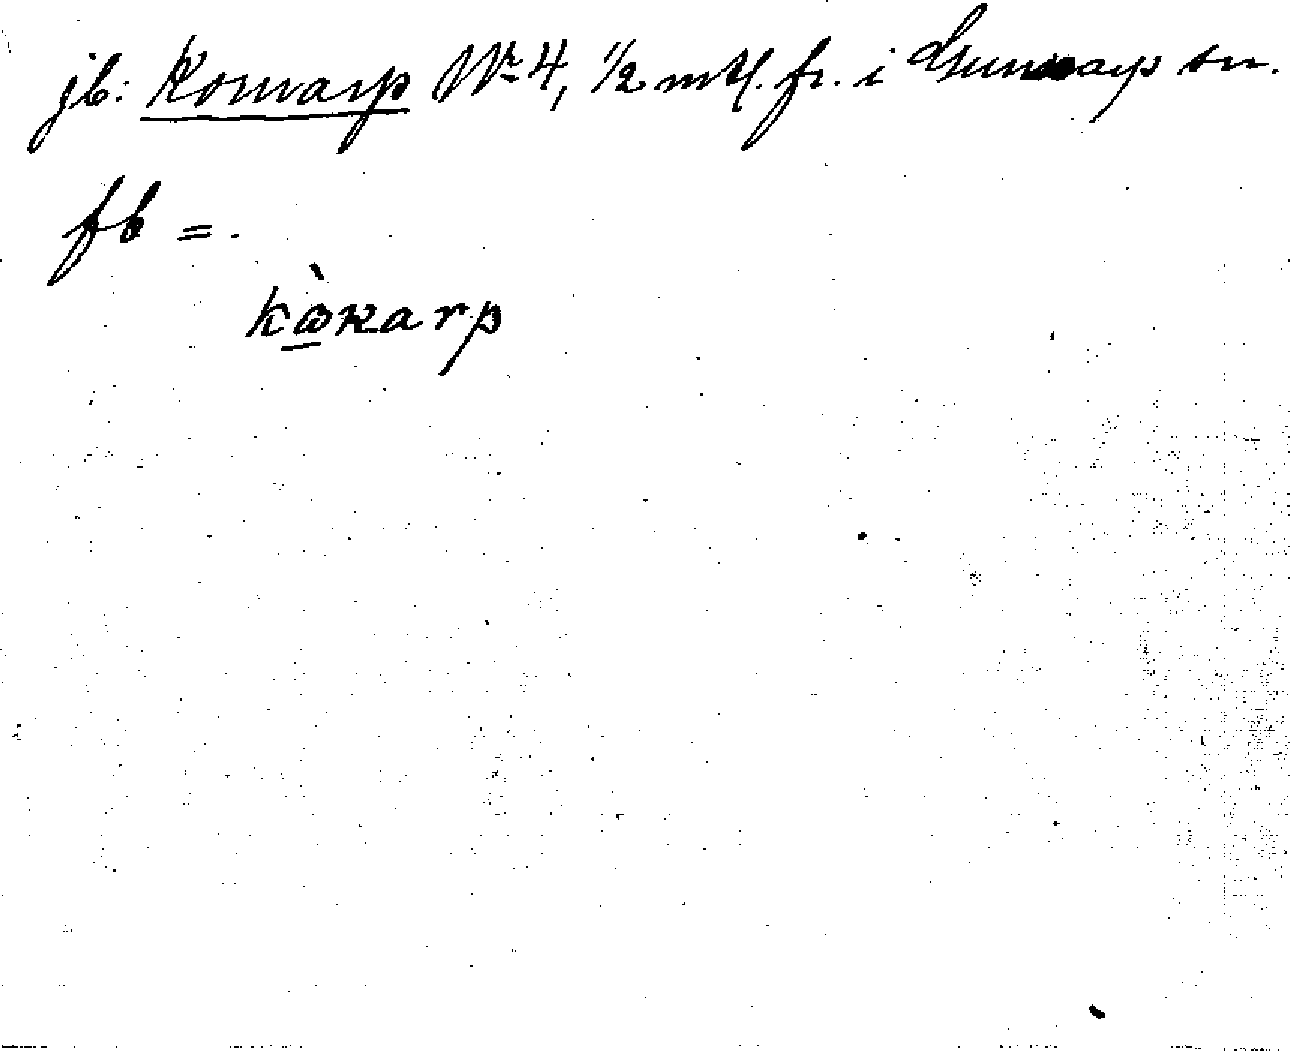 jb: Komarp Nr 4, 1/2 mtl. fr. i Gunnarp sn.
fb = .
kàkarp